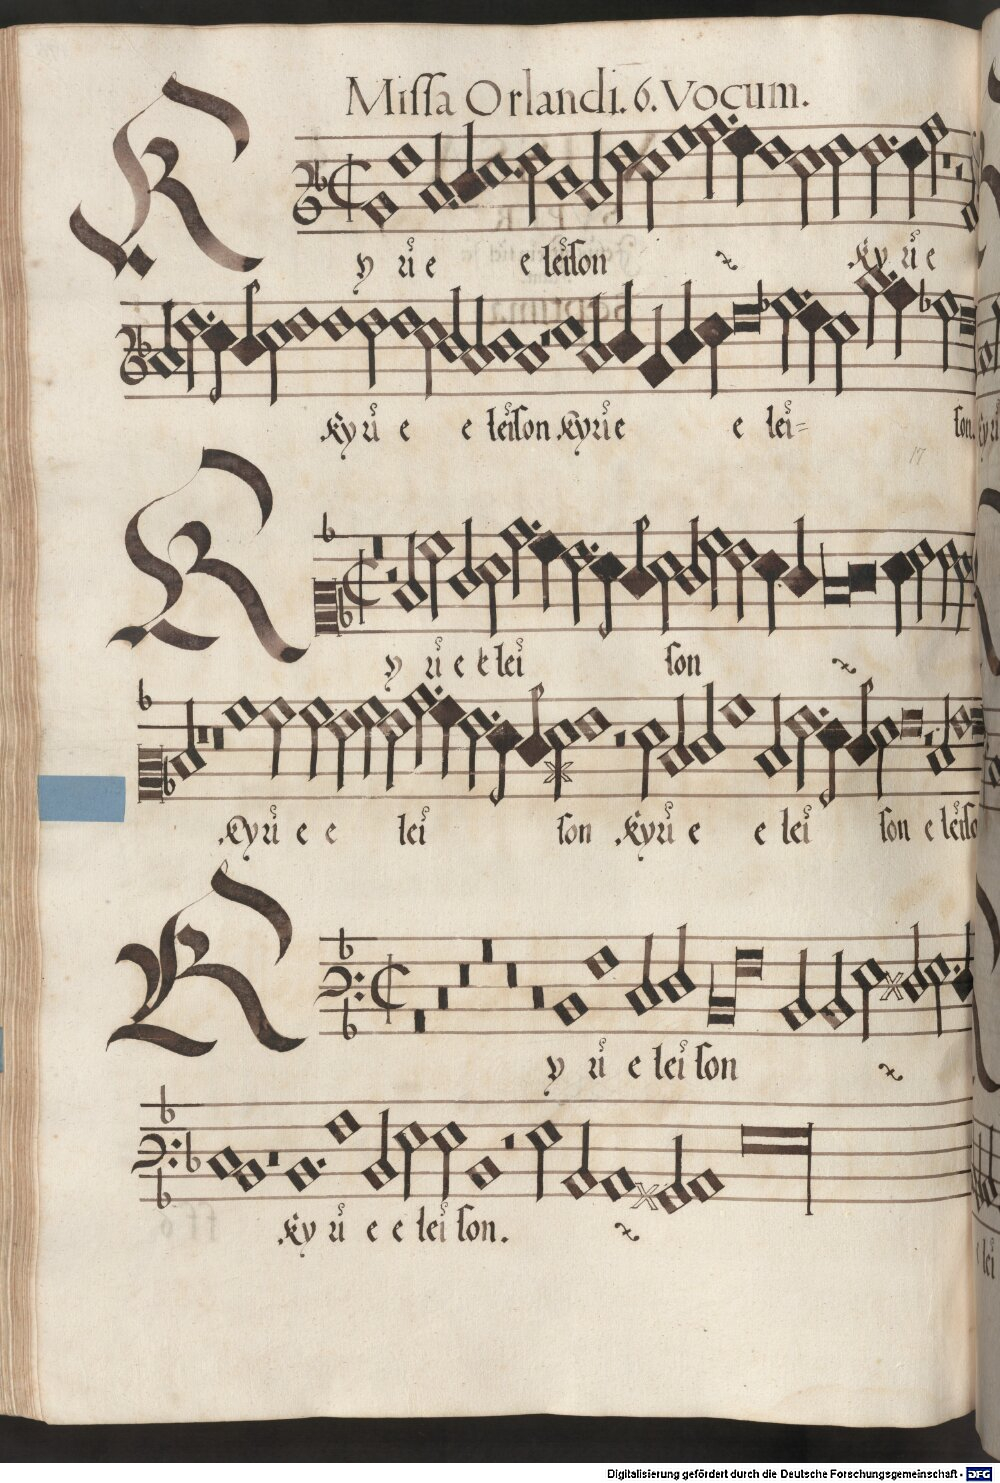 Missa Orlandi. 6. Vocum.
Kyrie eleison Kyrie
Kyrie eleison Kyrie elei= son.
17
Kyrie elei son
Kyrie e lei son Kyrie e lei son eleiso
Kyrie eleison
Kyrie e leison.
Digitalisierung gefördert durch die Deutsche Forschungsgemeinschaft - DFG